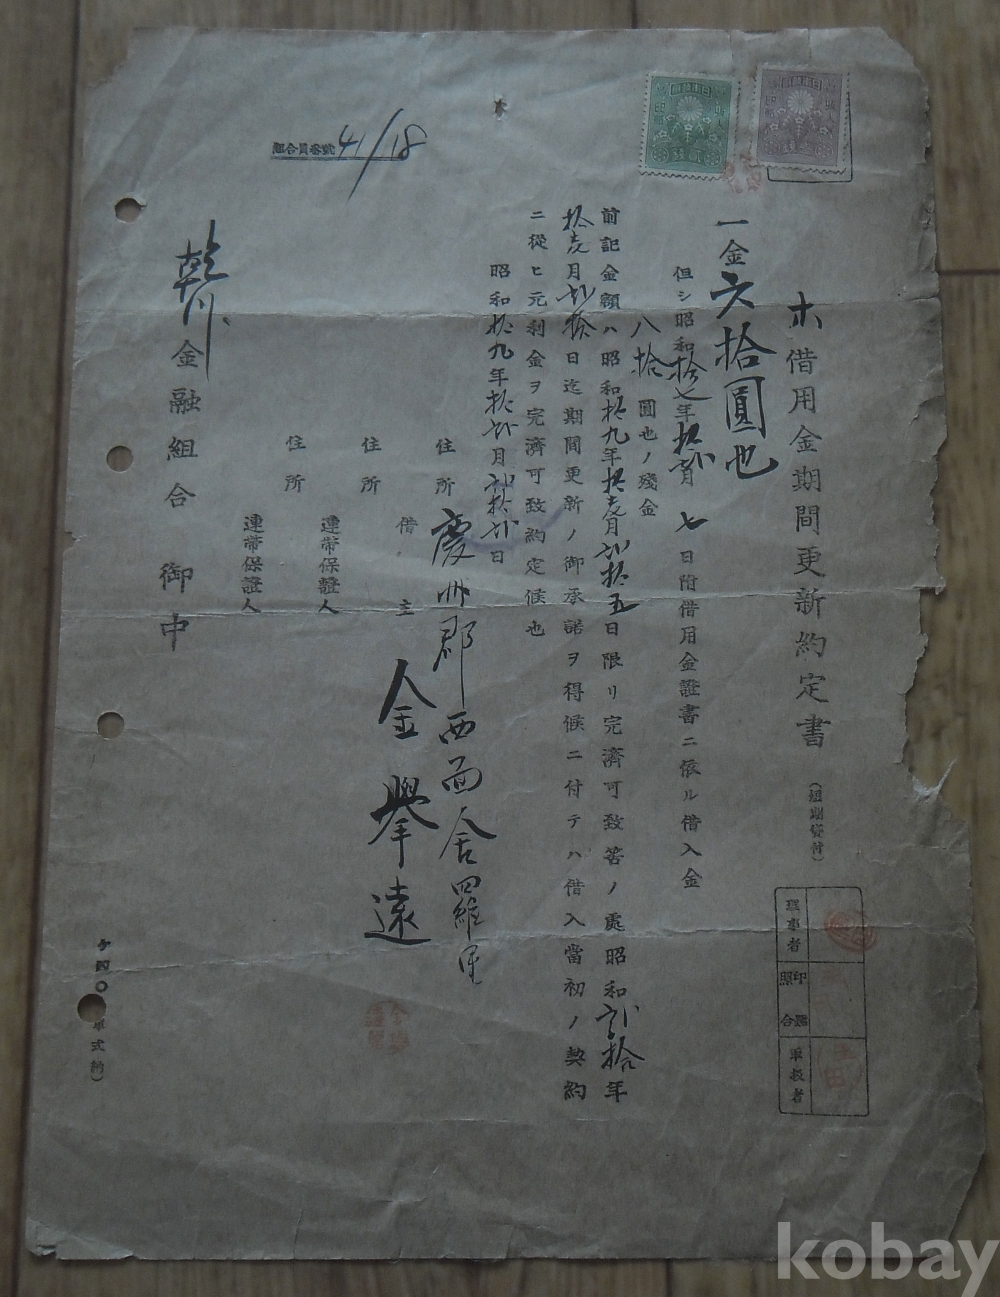 組合員番號 41/18
借用金期間更新約定書
(短期貸付)
一金六拾圓也
但シ昭和拾七年拾貳月七日附借用金證書ニ依ル借入金
八拾圓也ノ殘金
前記金額ハ昭和拾九年拾壹月貳拾五日限リ完濟可致筈ノ處昭和貳拾年
拾壹月貳拾日迄期間更新ノ御承諾ヲ得候ニ付テハ借入當初ノ契約
ニ從ヒ元利金ヲ完濟可致約定候也
昭和拾九年拾貳月貳拾貳日
住所 慶州郡西面舍羅里
借主 金擧遠
住所
連帶保證人
住所
連帶保證人
乾川金融組合 御中
理事者
印鑑照合
事扱者
kobay